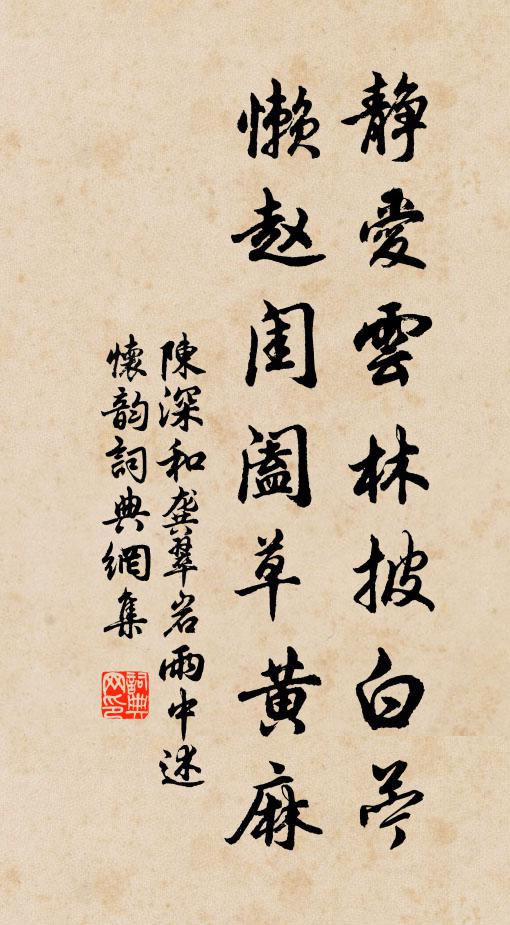 靜愛雲林披白苧
懶趨閨闔草黃麻
陳深和龔翠岩雨中述
懷韵詞典網集
詞典網印